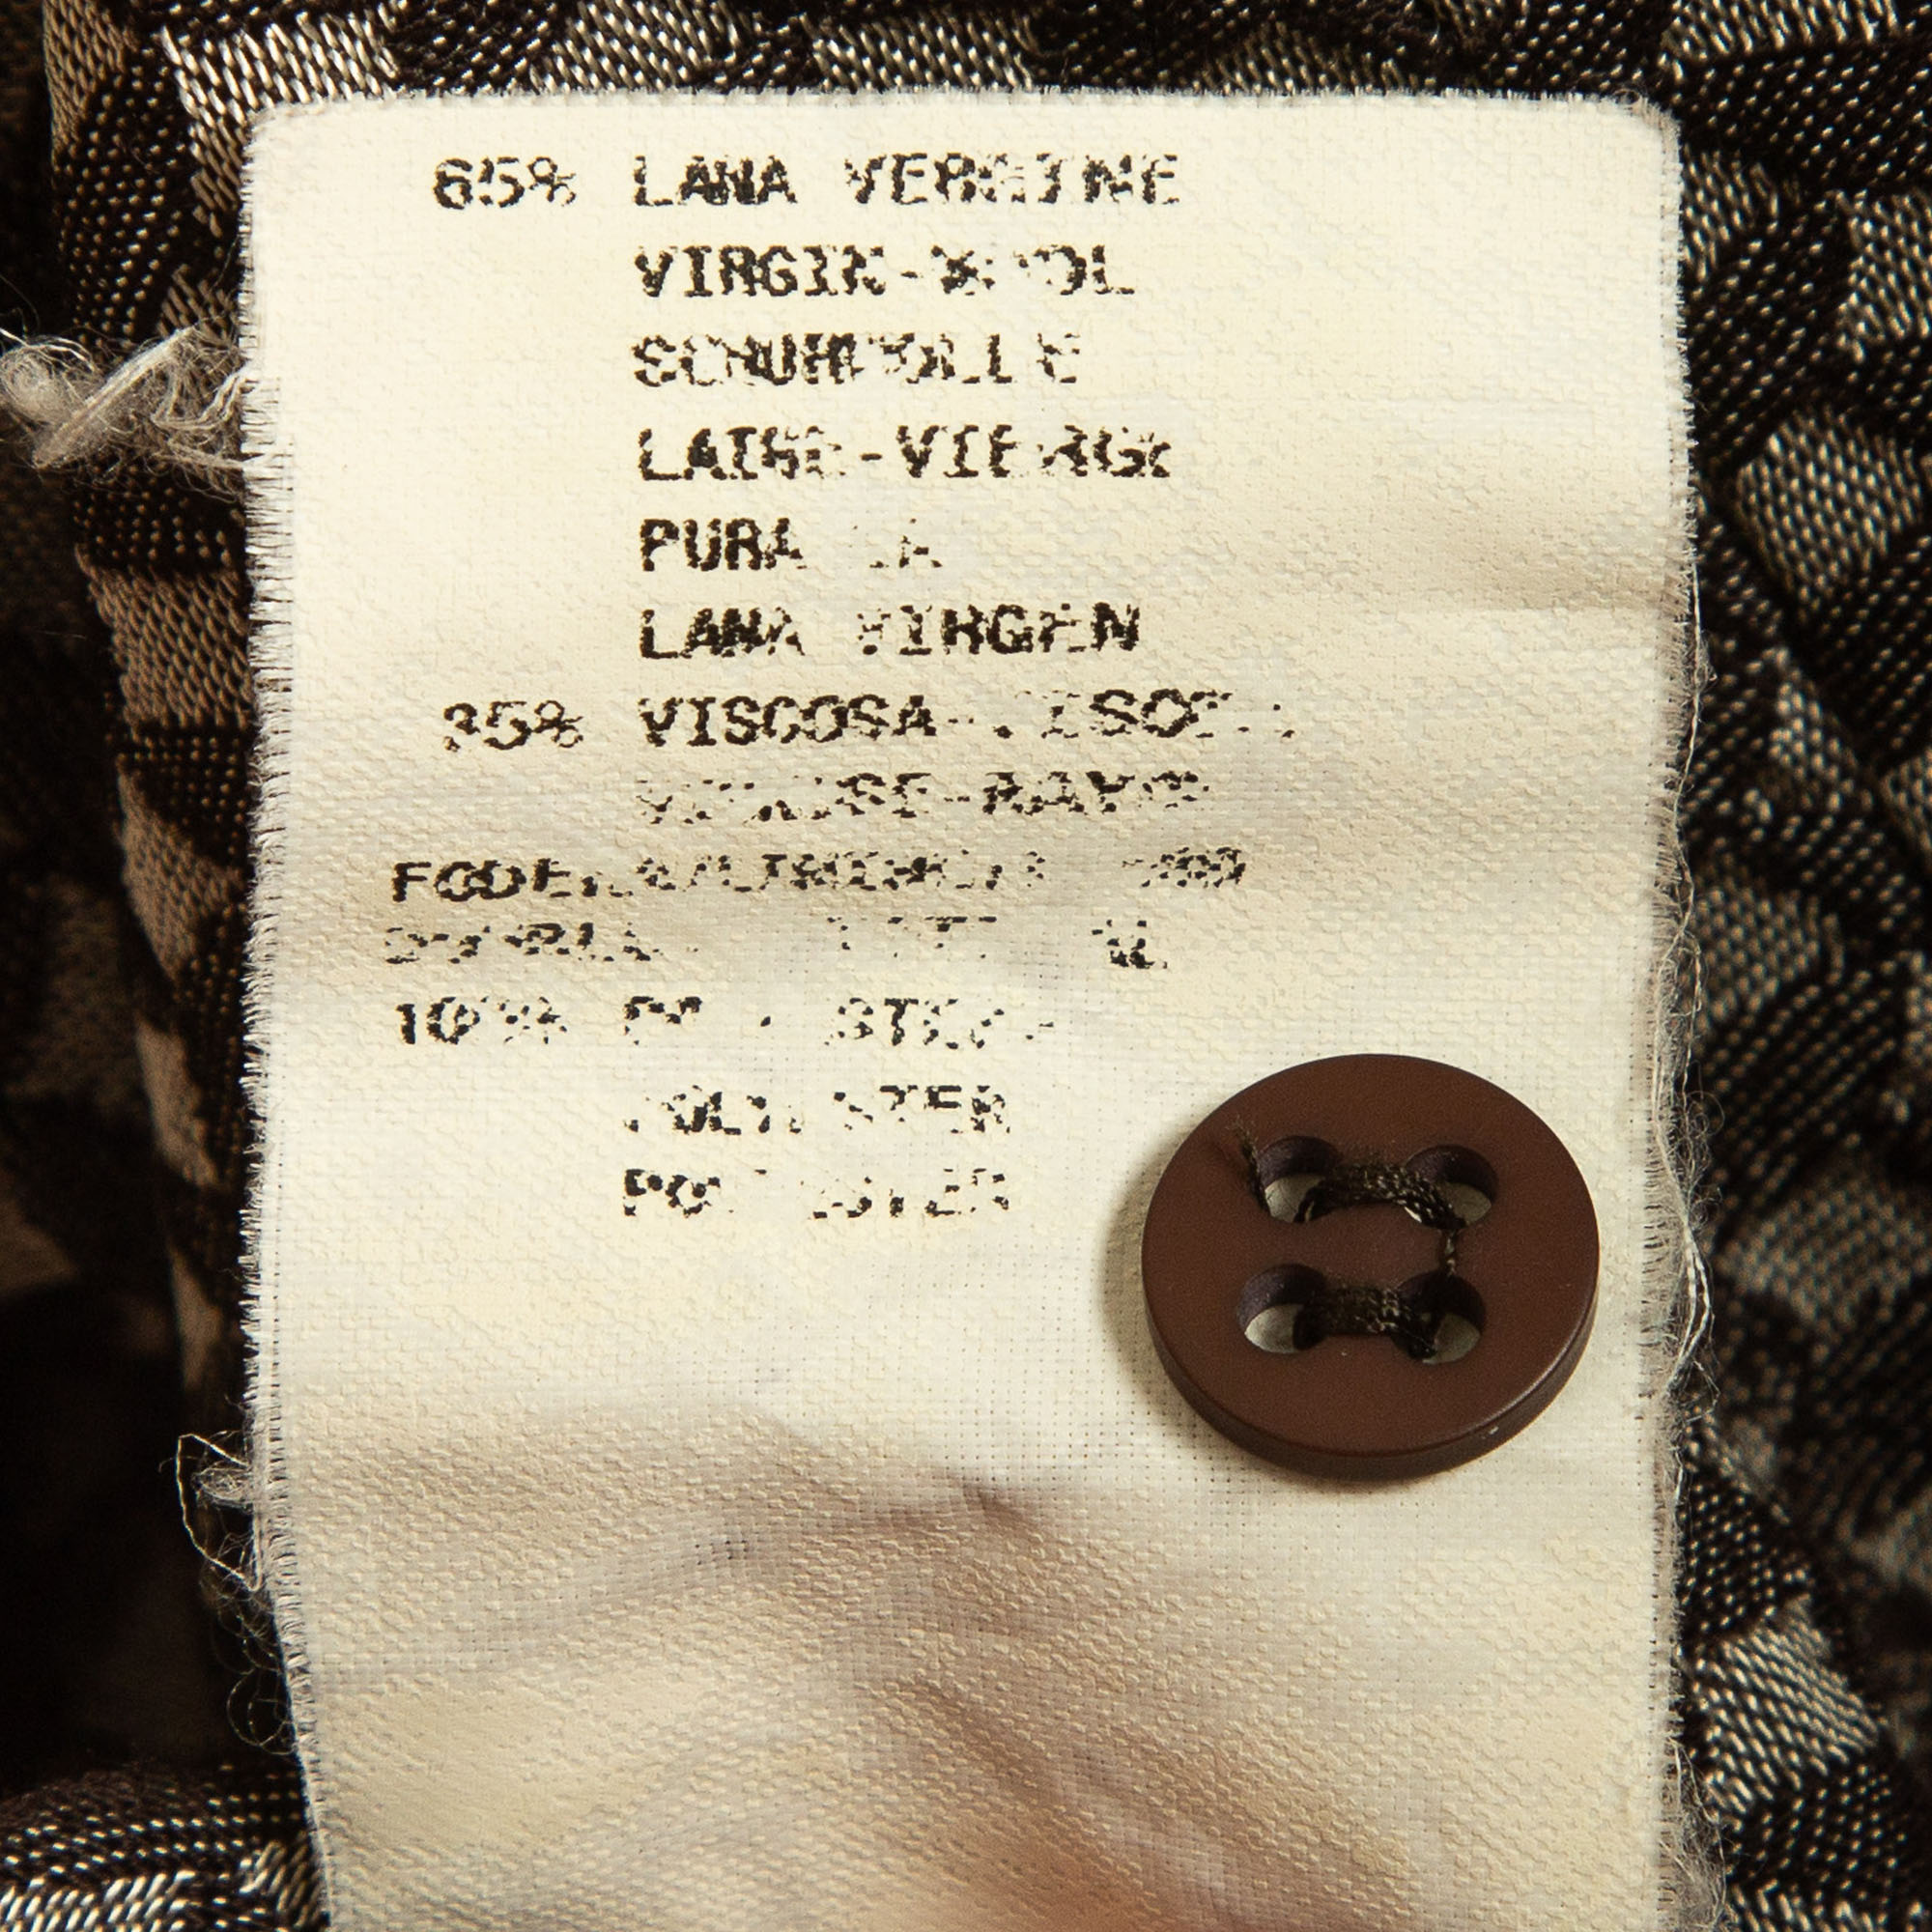 65% LANA VERGINE
VIRGIN-WOOL
SCHURWOLLE
LAINE-VIERGE
PURA LA
LANA VIRGEN
35% VISCOSA-VISCOSE
VISCOSE-RAYON
FODERA/LINING/
100% POLIESTERE
POLYESTER
POLYESTER